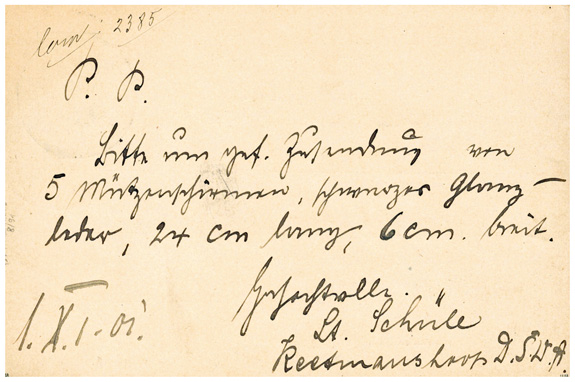 2385
P. P.
Bitte um gef. Zusendung von
5 Mützenschirmen, schwarzes Glanz-
leder, 24 cm lang, 6 cm. breit.
Hochachtvoll.
Lt. Schüle
Keetmanshoop D.S.W.A.
1. X. 01.